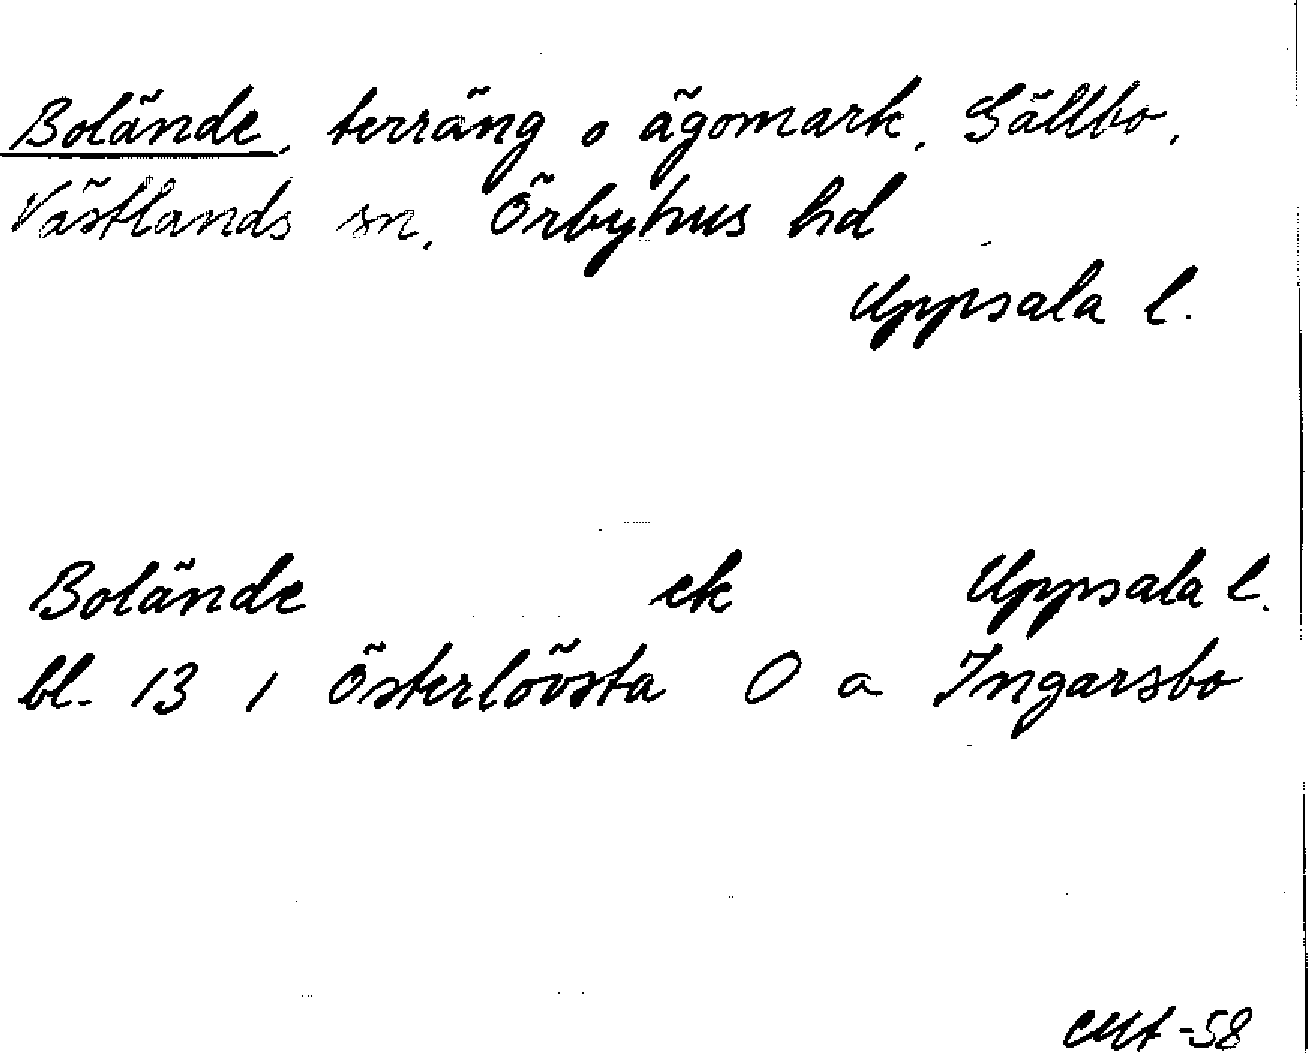 Bolände, terräng o ägomark, Sällbo,
Västlands sn, Örbyhus hd
Uppsala l.
Bolände ek Uppsala l.
bl. 13 1 Österlövsta O a Ingarsbo
-58